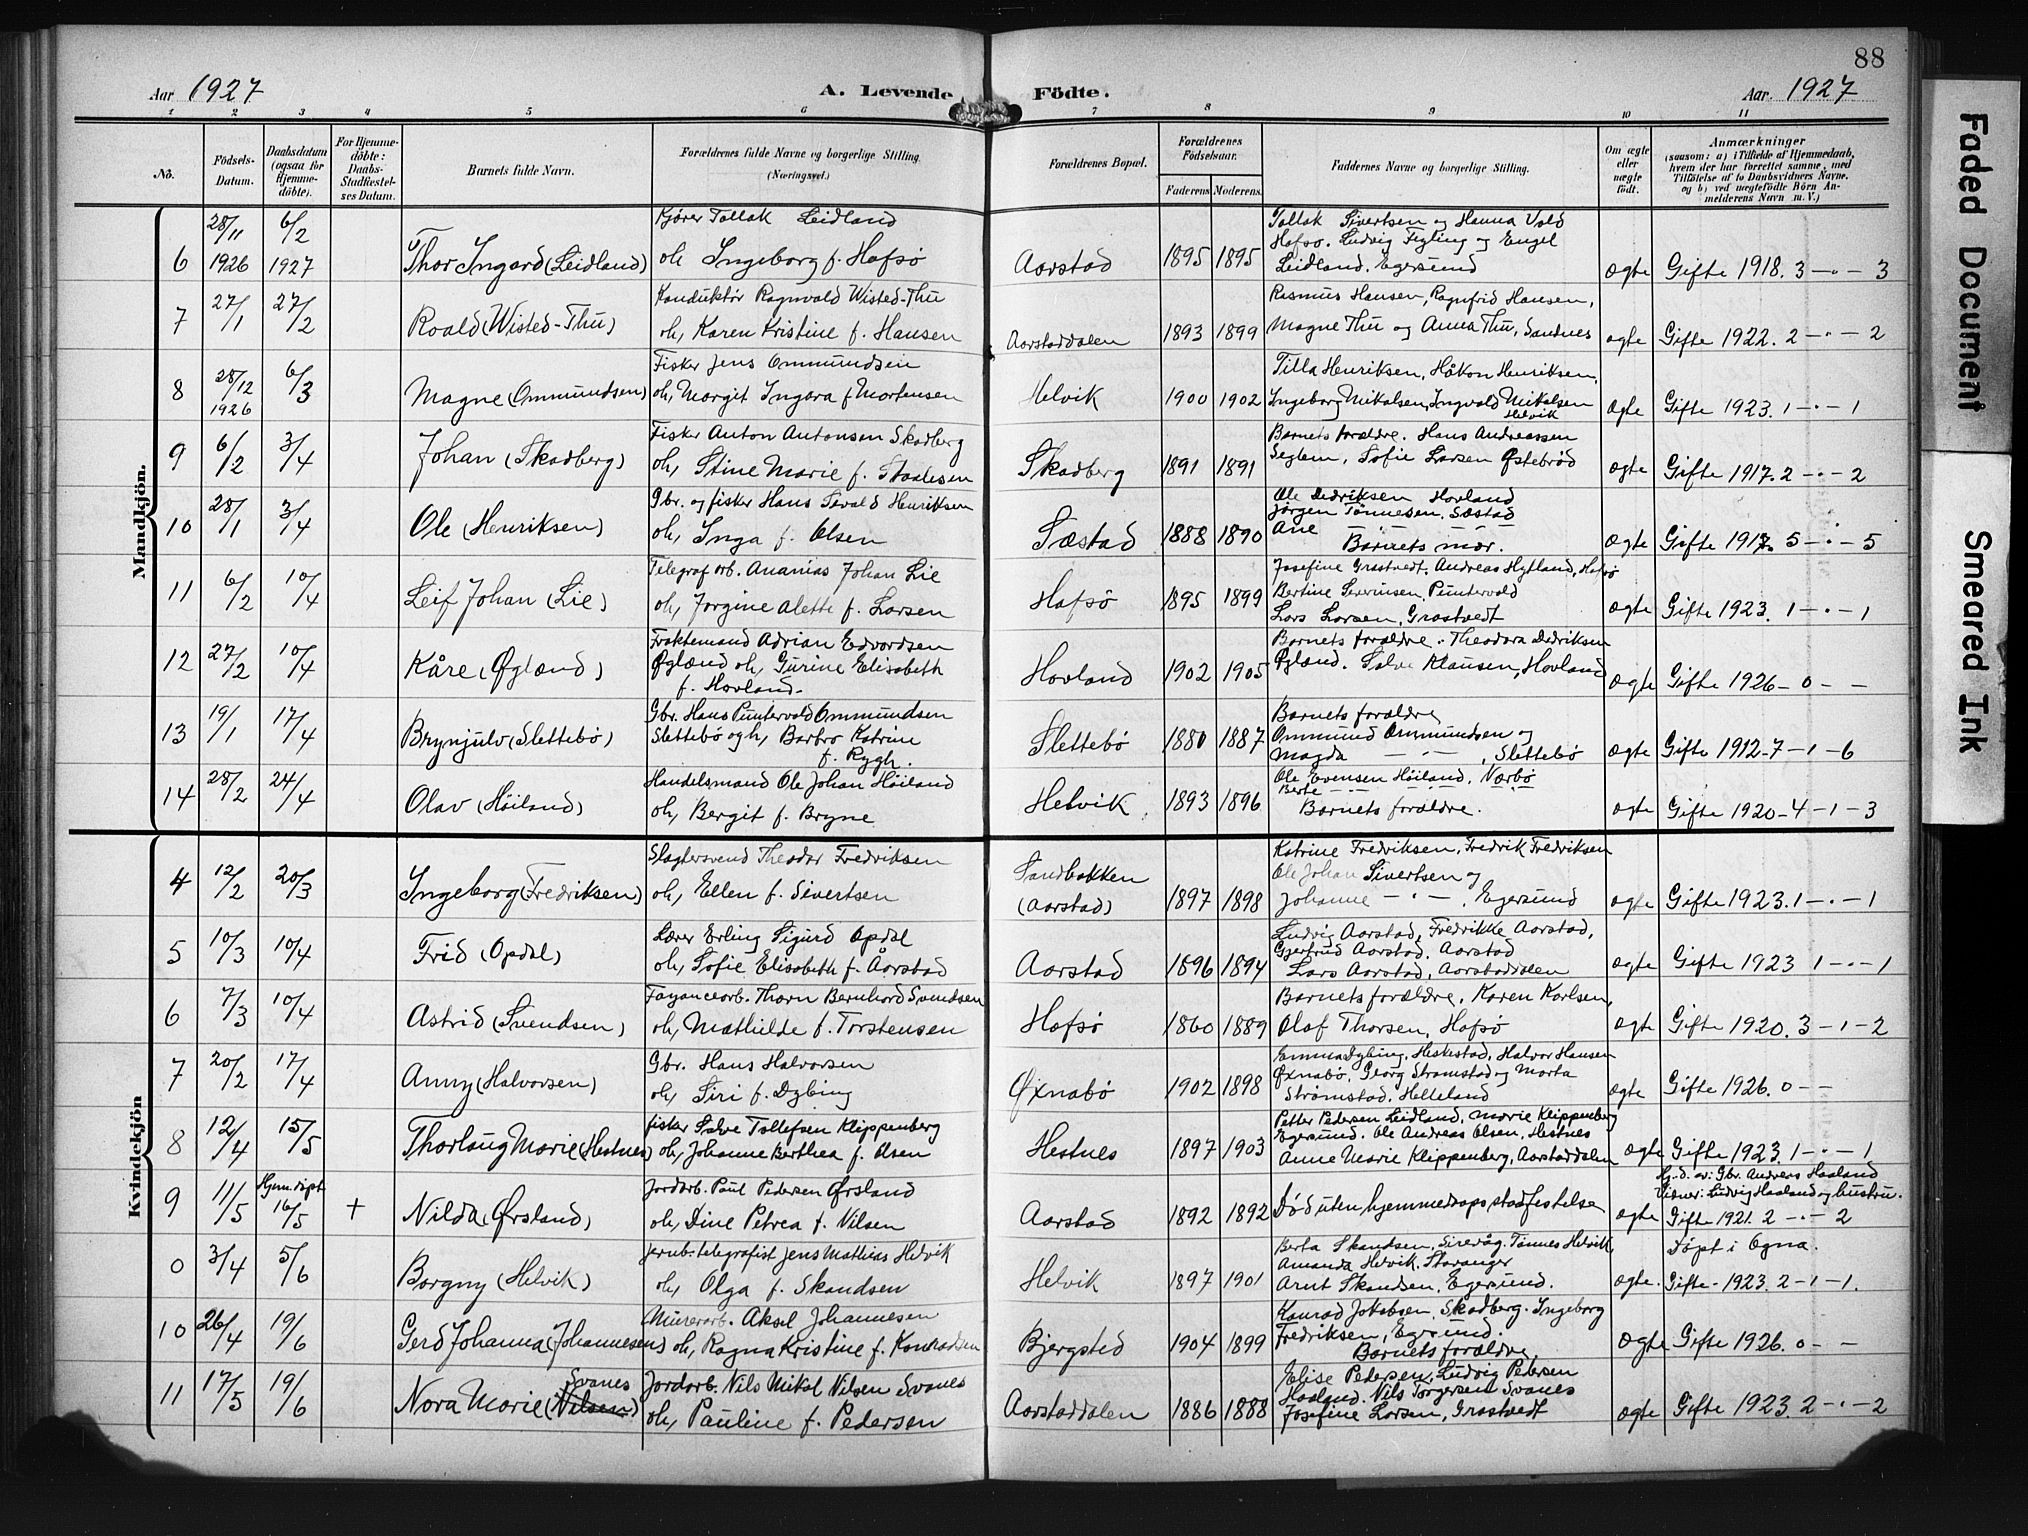 88
Aar 1927
A. Levende
Födte.
Aar. 1927
1 2 3 4 5 6 7 8 9 10 11
No.
Födsels-Datum.
Daabsdatum (ogsaa for Hjemmedöbte).
For Hjemmedöbte: Daabs-Stadfæstelses Datum.
Barnets fulde Navn.
Forældrenes fulde Navne og borgerlige Stilling.
(Næringsvei.)
Forældrenes Bopæl.
Forældrenes Födselsaar.
Faderens Moderens.
Faddernes Navne og borgerlige Stilling.
Om ægte eller uægte födt.
Anmærkninger
(saasom: a) i Tilfælde af Hjemmedaab, hvem der har forrettet samme, med Tilföielse af to Daabsvidners Navne, og b) ved uægtefödte Börn Anmelderens Navn m. V.)
Mandkjön.
6 28/11 1926 6/2 1927 Thor Ingard (Leidland)
Kjører Tollak Leidland
oh, Ingeborg f. Hafsø
Aarstad 1895 1895
Tollak Sivertsen og Hanna Vold
Hafsø. Ludvig Tegling og Engel
Leidland. Egersund
ægte Gifte 1918. 3 - · - 3
7 27/1 27/2 Roald (Wisted-Thu)
Konduktør Ragnvald Wisted-Thu
oh, Karen Kristine f. Hansen
Aarstaddalen 1893 1899
Rasmus Hansen, Ragnfrid Hansen,
Magne Thu og Anna Thu, Sandnes
ægte Gifte 1922. 2 - · - 2
8 28/12 1926 6/3 Magne (Ommundsen)
Fisker Jens Ommundsen
oh, Margit Ingara f Mortensen
Helvik 1900 1902
Tilla Henriksen, Håkon Henriksen,
Ingeborg Mikalsen, Ingvald Mikalsen
Helvik
ægte Gifte 1923. 1 - · - 1
9 6/2 3/4 Johan (Skadberg)
Fisker Anton Antonsen Skadberg
oh, Stine Marie f. Staalesen
Skadberg 1891 1891
Barnets forældre. Hans Andreassen
Seglem, Sofie Larsen Østebrød
ægte Gifte 1917. 2 - · - 2
10 28/1 3/4 Ole (Henriksen)
Gbr. og fisker Hans Sevald Henriksen
oh, Inga f. Olsen
Sæstad 1888 1890
Ole Dedriksen Hovland
Jørgen Tønnesen, Sæstad
Ane - · - - · -
Barnets mor.
ægte Gifte 1917. 5 - · - 5
11 6/2 10/4 Leif Johan (Lie)
Telegraf arb. Ananias Johan Lie
oh, Jorgine Alette f. Larsen
Hafsø 1895 1899
Josefine Grastvedt. Andreas Hytland, Hafsø
Bertine Severinsen, Puntervold
Lars Larsen, Grastvedt
ægte Gifte 1923. 1 - · - 1
12 27/2 10/4 Kåre (Øglænd)
Fraktemand Adrian Edvardsen
Øglænd oh, Gurine Elisabeth
f. Hovland.
Hovland 1902 1905
Barnets forældre. Theodora Dedriksen
Øgland. Salve Klausen, Hovland
ægte Gifte 1926 - 0 - -
13 19/1 17/4 Brynjulv (Slettebø)
Gbr. Hans Puntervold Ommundsen
Slettebø ogh, Barbro Katrine
f. Rygh.
Slettebø 1880 1887
Barnets forældre
Ommund Ommundsen og
Magda - · - , Slettebø
ægte Gifte 1912 - 7 - 1 - 6
14 28/2 24/4 Olav (Høiland)
Handelsmand Ole Johan Høiland
oh, Bergit f. Bryne
Helvik 1893 1896
Ole Evensen Høiland, Nærbø
Berte - · - - · -
Barnets forældre.
ægte Gifte 1920 - 4 - 1 - 3
Kvindekjön
4 12/2 20/3 Ingeborg (Fredriksen)
Slagtersvend Theodor Fredriksen
oh, Ellen f. Sivertsen
Sandbakken
(Aarstad) 1897 1898
Katrine Fredriksen, Fredrik Fredriksen
Ole Johan Sivertsen og
Johanne - · - , Egersund
ægte Gifte 1923. 1 - · - 1
5 10/3 10/4 Frid (Opdal)
Lærer Erling Sigurd Opdal
oh, Sofie Elisabeth f. Aarstad
Aarstad 1896 1894
Ludvig Aarstad, Fredrikke Aarstad,
Gjertrud Aarstad, Aarstad
Lars Aarstad, Aarstaddalen
ægte Gifte 1923 1 - · - 1
6 7/3 10/4 Astrid (Svendsen)
Fayancearb. Thorn Bernhard Svendsen
oh, Mathilde f. Torstensen
Hafsø 1860 1889
Barnets forældre, Karen Karlsen,
Olaf Thorsen, Hafsø
ægte Gifte 1920. 3 - 1 - 2
7 20/2 17/4 Anny (Halvorsen)
Gbr. Hans Halvorsen
oh, Siri f. Dybing
Øxnabø 1902 1898
Emma Dybing, Heskestad, Halvor Hansen
Øxnabø, Georg Strømstad og Marta
Strømstad, Helleland
ægte Gifte 1926. 0 - -
8 12/4 15/5 Thorlaug Marie (Hestnes)
fisker Salve Tollefsen Klippenberg
oh, Johanne Berthea f. Olsen
Hestnes 1897 1903
Petter Pedersen Leidland, Marie Klippenberg
Egersund. Ole Andreas Olsen, Hestnes
Anne Marie Klippenberg, Aarstaddalen
ægte Gifte 1923. 1 - · - 1
9 11/5 Hjem.døpt 16/5 + Nilda (Ørsland)
Jordarb. Paul Pedersen Ørsland
oh, Dine Petrea f. Nilsen
Aarstad 1892 1892
Død uten hjemmedaps stadfestelse
ægte
Hj.d. av: Gbr. Andreas Haaland
Vidner: Ludvig Haaland og hustru.
Gifte 1921. 2 - · - 2
0 3/4 5/6 Borgny (Helvik)
Jernb. telegrafist Jens Mathias Helvik
oh, Olga f. Skandsen
Helvik 1897 1901
Berta Skandsen, Sirevåg. Tønnes Helvik,
Amanda Helvik, Stavanger
Arnt Skandsen, Egersund.
ægte.
Døpt i Ogna.
Gifte - 1923. 2 - 1 - 1.
10 26/4 19/6 Gerd Johanna (Johannesen)
Murerarb. Aksel Johannesen
oh, Ragna Kristine f. Konradsen
Bjergsted 1904 1899
Konrad Jakobsen, Skadberg. Ingeborg
Fredriksen, Egersund.
Barnets forældre.
ægte Gifte 1926. 0 - -
11 17/5 19/6 Nora Marie (Nilsen) Svanes
Jordarb. Nils Mikal Nilsen Svanes
oh, Pauline f. Pedersen
Aarstaddalen 1886 1888
Elise Pedersen, Ludvig Pedersen
Haaland. Nils Torgersen Svanes
Josefine Larsen, Grastvedt
ægte Gifte 1923. 2 - · - 2
Faded Document
Smeared Ink